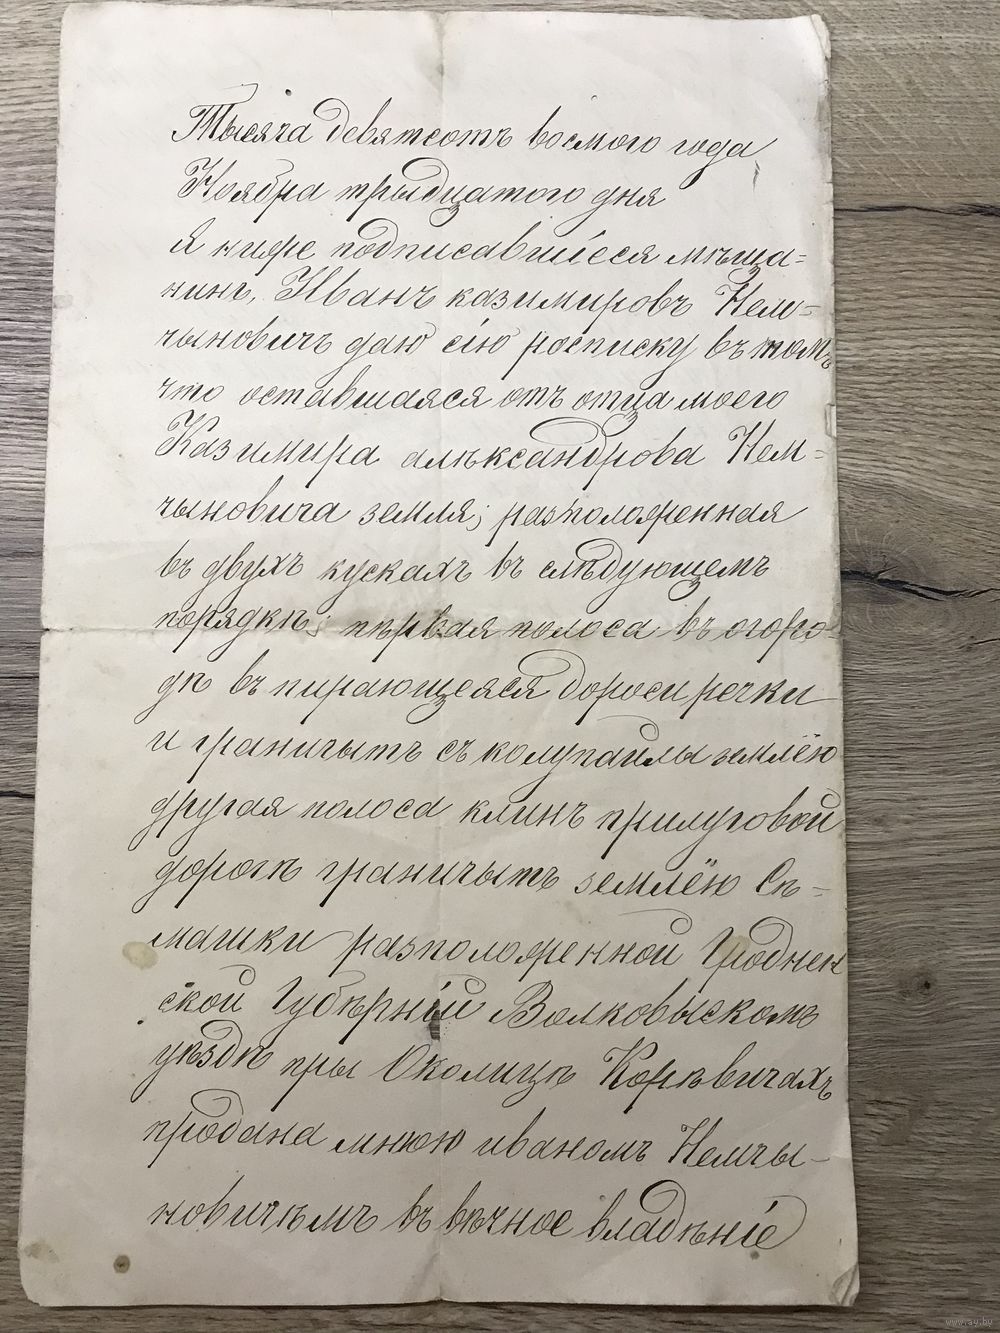 Тысяча девятсотъ восмого года
Ноября трыдцатого дня
я ниже подписавшіеся мѣща=
нинъ, Иванъ казимировъ Нем=
чыновичъ даю сію росписку въ томъ
что оставшаяся отъ отца моего
Казимира алѣксандрова Нем=
чыновича земля; разположенная
въ двухъ кускахъ въ слѣдующемъ
порядкѣ; пѣрвая полоса въ огоро-
дѣ въпирающеяся доросиречки
и граничытъ съ колупайлы землёю
другая полоса клинъ прилуговой
дорогѣ граничытъ землёю Сѣ=
машки разположенной Гроднен
ской Губѣрній Волковыскомъ
уѣздѣ пры Околицѣ Корѣвичахъ
продана мною иваномъ Немчы-
новичѣмъ въ вѣчное владѣніе
www.ay.by